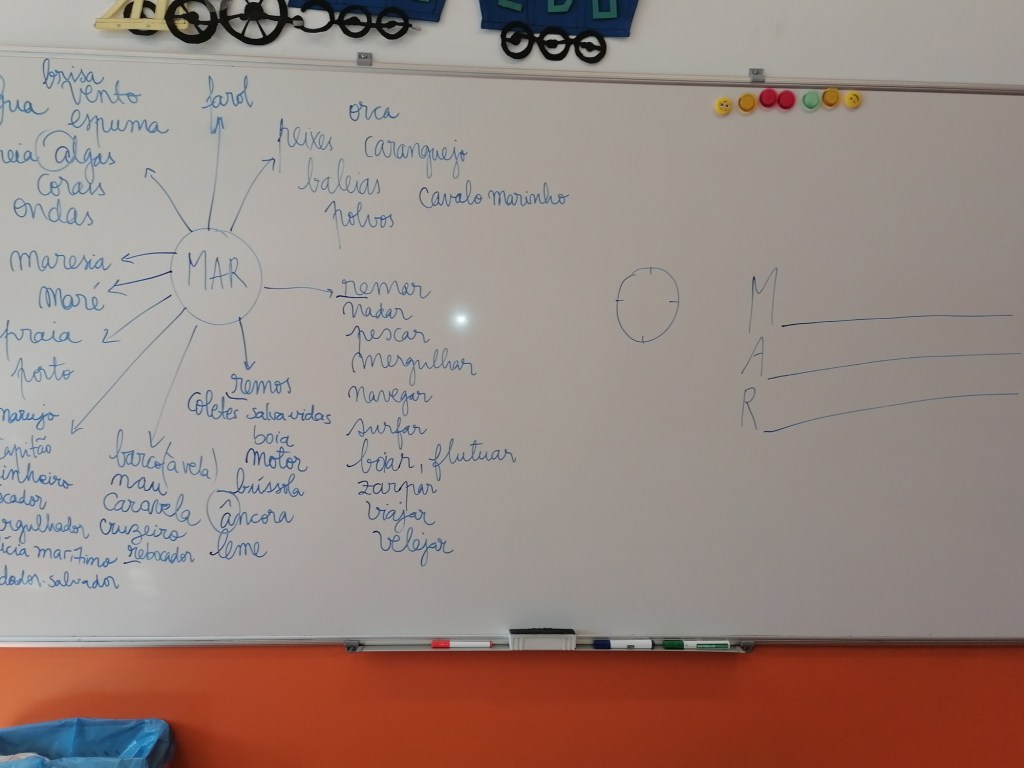 brisa
vento
espuma
algas
corais
ondas
farol
orca
peixes caranguejo
baleias cavalo marinho
polvos
MAR
maresia
maré
praia
porto
marujo
capitão
barco (à vela)
nau
caravela
cruzeiro
rebocador
marítimo
salvador
remos
coletes salva vidas
boia
motor
bússola
âncora
leme
remar
nadar
pescar
mergulhar
navegar
surfar
boiar, flutuar
zarpar
viajar
velejar
M
A
R